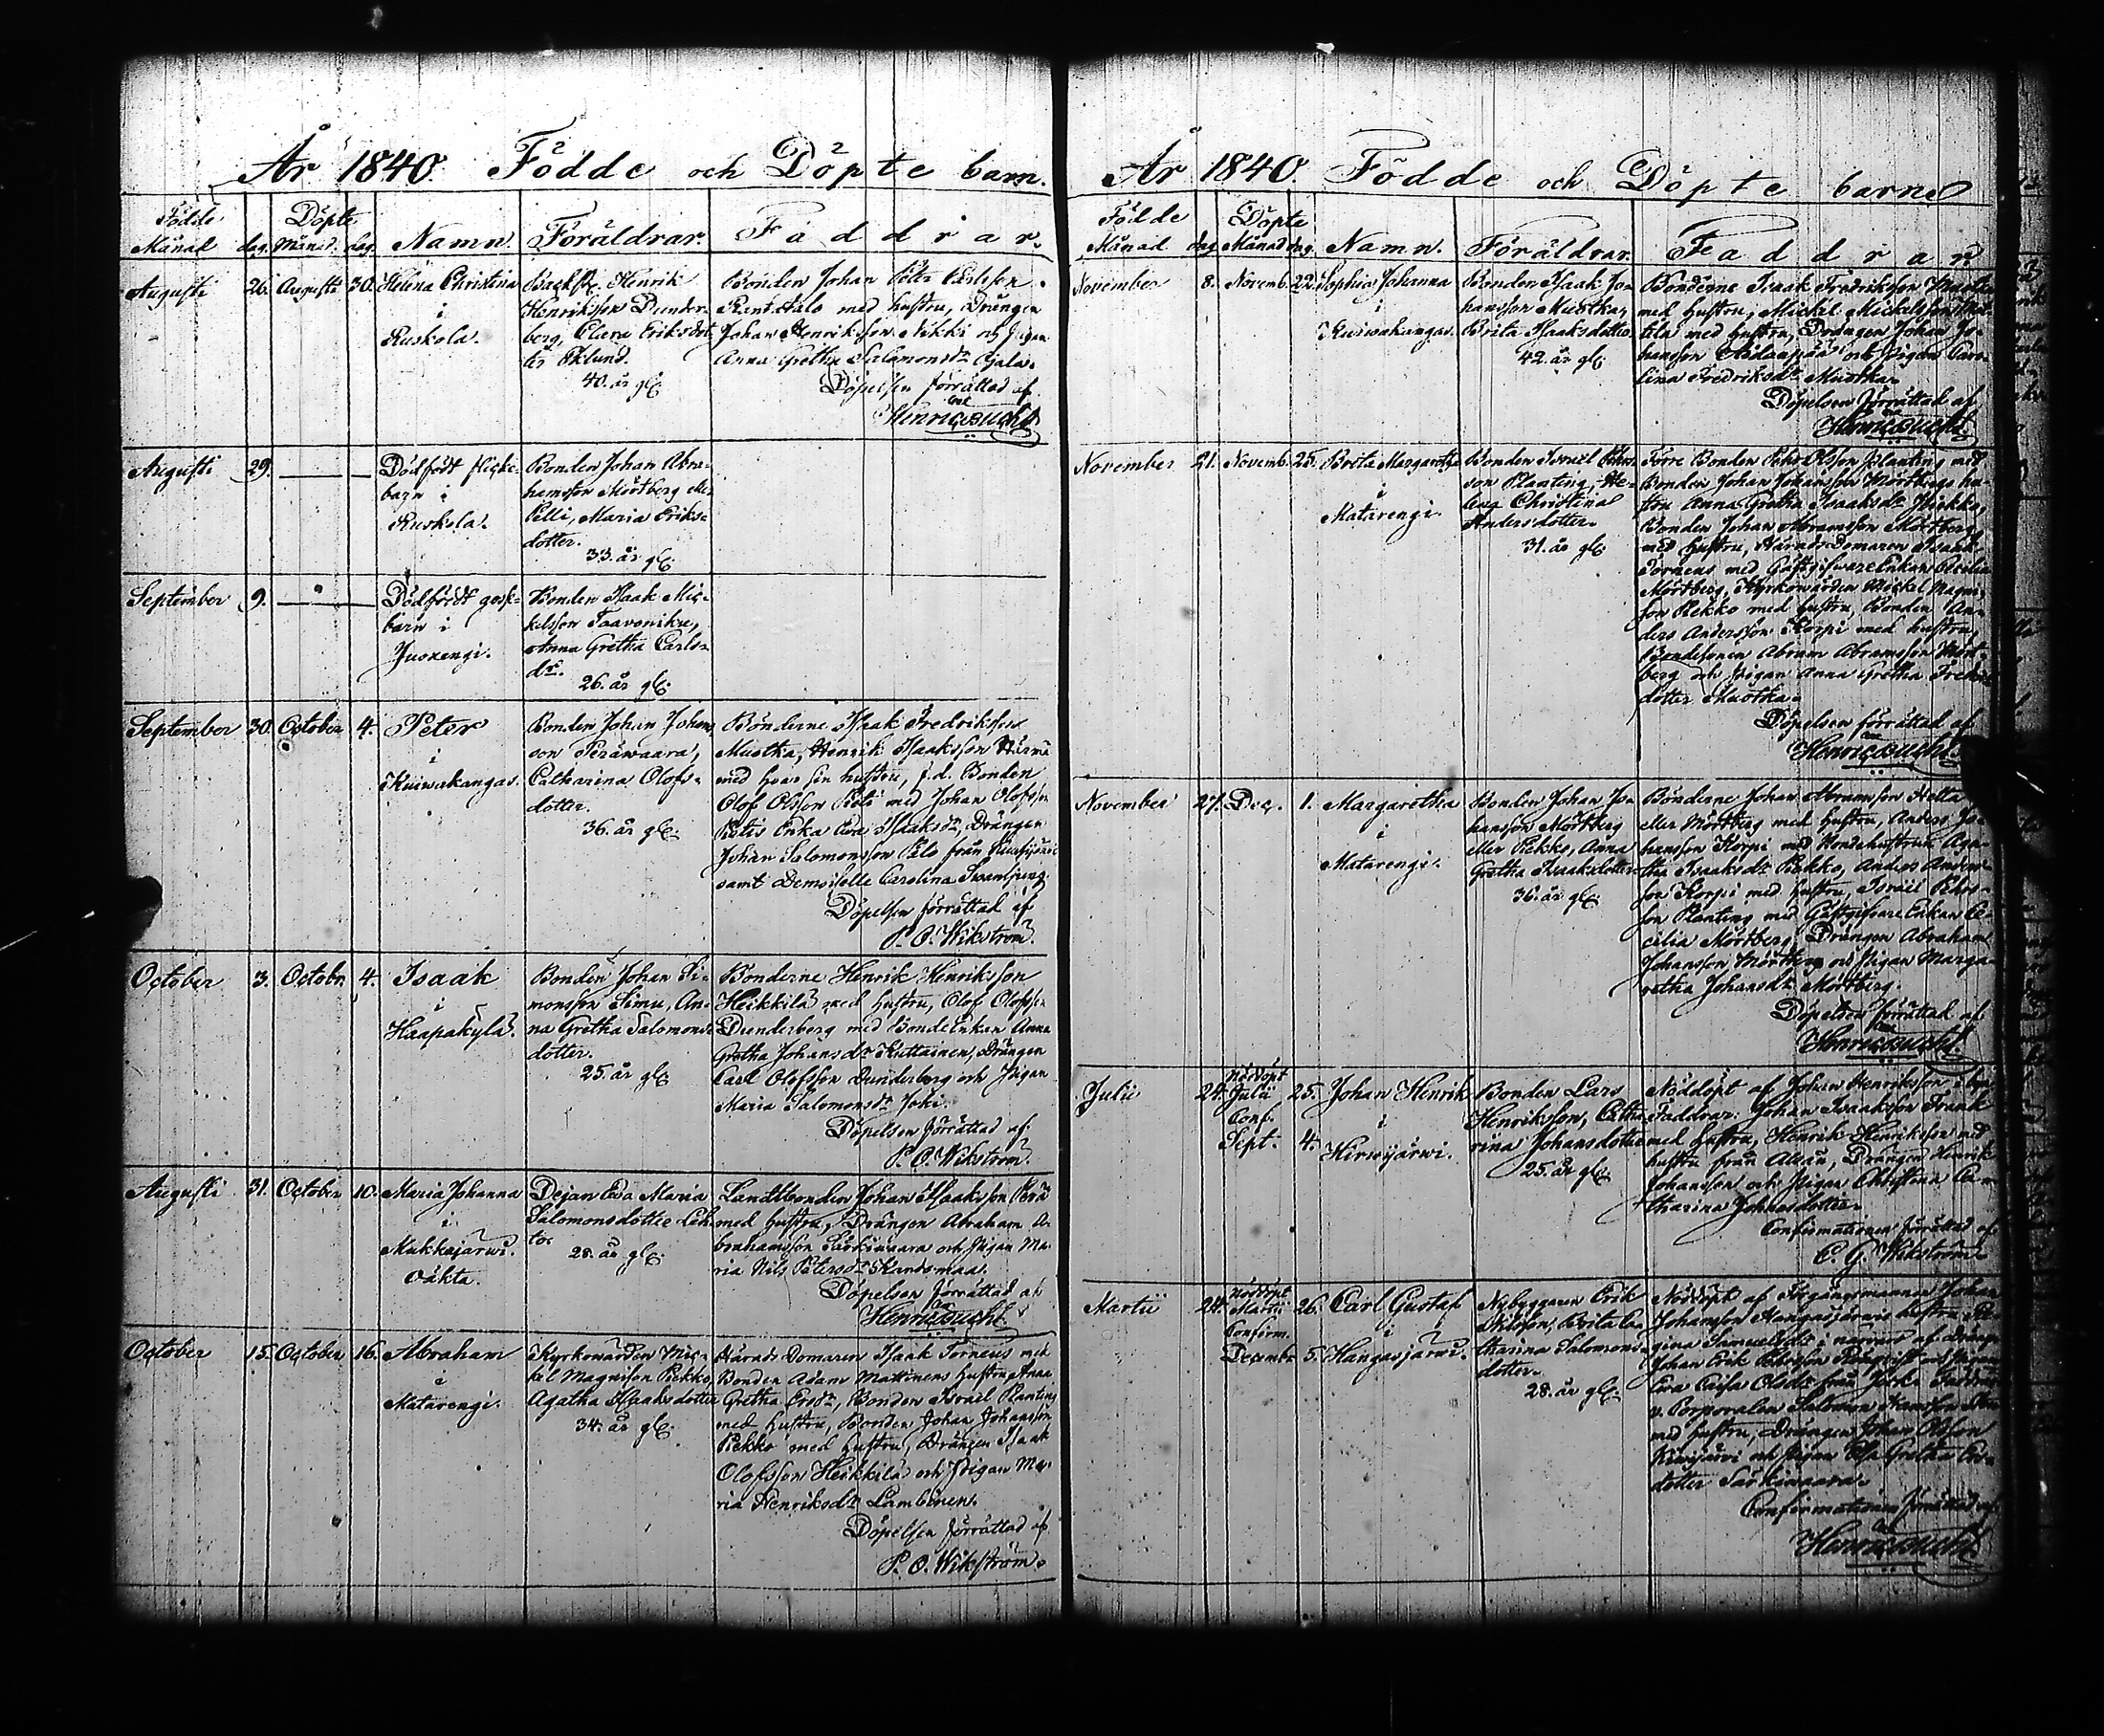 År 1840. Födde och Döpte barn.
Födde Månad dag. Döpte Månad. dag. Namn. Föräldrar. Faddrar.
Augusti 26. Augusti 30. Helena Christina
i
Ruskola.
Henrik
Henriksson Dunder-
berg, Clara Eriksdot-
ter Eklund.
40. år gl.
Bonden Johan Petr Carlsson
Rantatalo med hustru, Drängen
Johan Henriksson Nikki och Pigan
Anna Gretha Salomonsdr
Döpelsen förrättad af
Henric Bucht
Augusti 29.
Dödfödt flicke-
barn i
Ruskola.
Bonden Johan Abra-
hamsson Mörtberg eller
Pelli, Maria Eriks-
dotter.
33. år gl.
September 9.
Dödfödt gosse-
barn i
Juoxengi.
Bonden Isaak Mic-
kelsson Taavoniku,
Anna Gretha Carls-
dr.
26. år gl.
September 30. October 4. Peter
i
Kuiwakangas.
Bonden Johan Johans-
son Peräwaara,
Catharina Olofs-
dotter.
36. år gl.
Bönderne Isaak Fredriksson
Muotka, Henrik Isaaksson
med hvar sin hustru, f.d. Bonden
Olof Olsson med Johan Olofsson
Enka Eva Isaaksdr, Drängen
Johan Salomonsson Palo från
samt Demoiselle Carolina
Döpelsen förrättad af
P. O. Wikström.
October 3. Octobr 4. Isaak
i
Haapakylä.
Bonden Johan Si-
monsson Simu, An-
na Gretha Salomons-
dotter.
25. år gl.
Bönderne Henrik Henriksson
Heikkilä med hustru, Olof Olofsson
Dunderberg med BondeEnkan Anna
Gretha Johansdr Kuttainen, Drängen
Carl Olofsson Dunderberg och Pigan
Maria Salomonsdr Joki.
Döpelsen förrättad af
P. O. Wikström.
Augusti 31. October 10. Maria Johanna
i
Mukkajärwi.
Oäkta.
Dejan Eva Maria
Salomonsdotter Leh-
to.
28. år gl.
Landtbonden Johan Isaaksson Perä
med hustru, Drängen Abraham A-
brahamsson Särkiwaara och Pigan Ma-
ria Nils Petersdr
Döpelsen förrättad af
Henric Bucht
October 15. October 16. Abraham
i
Matarengi.
Kyrkowärden Mic-
kel Magnusson Piekko,
Agatha Isaaksdotter
34. år gl.
Härads Domaren Isaak Torneus med
Bonden Adam Mattinens hustru Anna
Gretha Ersdr, Bonden Israel Planting
med hustru, Bonden Johan Johansson
Piekko med hustru, Drängen Isaak
Olofsson Heikkilä och Pigan Ma-
ria Henriksdr Lambinen.
Döpelsen förrättad af
P. O. Wikström.
År 1840. Födde och Döpte barn
Födde Månad dag Döpte Månad dag. Namn. Föräldrar. Faddrar
November 8. Novemb. 22. Sophia Johanna
i
Kuiwakangas.
Bonden Isaak Jo-
hansson Muotka,
Brita Isaaksdotter
42. år gl.
Bönderne Isaak Fredriksson Muotka
med hustru, Mickel Mickelsson
med hustru, Drängen Johan Jo-
hansson och Pigan Caro-
lina Fredriksdr Muotka.
Döpelsen förrättad af
Henric Bucht
November 21. Novemb. 25. Brita Margaretha
i
Matarengi.
Bonden Israel Pehrs-
son Planting, He-
lena Christina
Andersdotter.
31. år gl.
Förre Bonden Pehr Olsson Planting med
Bonden Johan Johansson Mörtbergs hu-
stru Anna Gretha Isaaksdr Piekko,
Bonden Johan Abramsson Mörtberg
med hustru, Härads Domaren Isaak
Torneus med Gästgifware Enkan Cecilia
Mörtberg, Kyrkowärden Mickel Magnus-
son Piekko med hustru, Bonden An-
ders Andersson Korpi med hustru,
Bondesonen Abram Abramsson Mört-
berg och Pigan Anna Gretha Fredriks-
dotter Muotka.
Döpelsen förrättad af
Henric Bucht
November 27. Dec. 1. Margaretha
i
Matarengi.
Bonden Johan Jo-
hansson Mörtberg
eller Piekko, Anna
Gretha Isaaksdotter
36. år gl.
Bönderne Johan Abramsson
eller Mörtberg med hustru, Anders Jo-
hansson Korpi med Bondehustrun Aga-
tha Isaaksdr Piekko, Anders Anders-
son Korpi med hustru, Israel Pehrs-
son Planting med Gästgifware Enkan Ce-
cilia Mörtberg, Drängen Abraham
Johansson Mörtberg och Pigan Marga-
retha Johansdr Mörtberg.
Döpelsen förrättad af
Henric Bucht
Julii 24. Nöddöpt Julii 25. Conf. Sept. 4. Johan Henrik
i
Hirwijärwi.
Bonden Lars
Henriksson, Catha-
rina Johansdotter
25. år gl.
Nöddöpt af Johan Henriksson i byn
Faddrar: Johan Isaaksson Frank
med hustru, Henrik Henriksson med
hustru från Allån, Drängen Henrik
Johansson och Pigan Christina Ca-
tharina Johansdotter.
Confirmationen förrättad af
C. G. Wikström.
Martii 24. Nöddöpt Martii 26. Confirm. Decembr 5. Carl Gustaf
i
Hangasjärwi.
Nybyggaren Erik
Nilsson, Brita Ca-
tharina Salomons-
dotter.
28. år gl.
Nöddöpt af Johan
Johansson Hangasjärwis hustru Re-
gina Samuelsdr i närvaro af Drängen
Johan Erik Petersson och Pigan
Eva Caisa Olsdr från Faddrar
v. Corporalen Salomon Hansson
med hustru, Drängen Johan Olsson
och Pigan Elsa Gretha Ers-
dotter Särkiwaara.
Confirmationen förrättad af
Henric Bucht